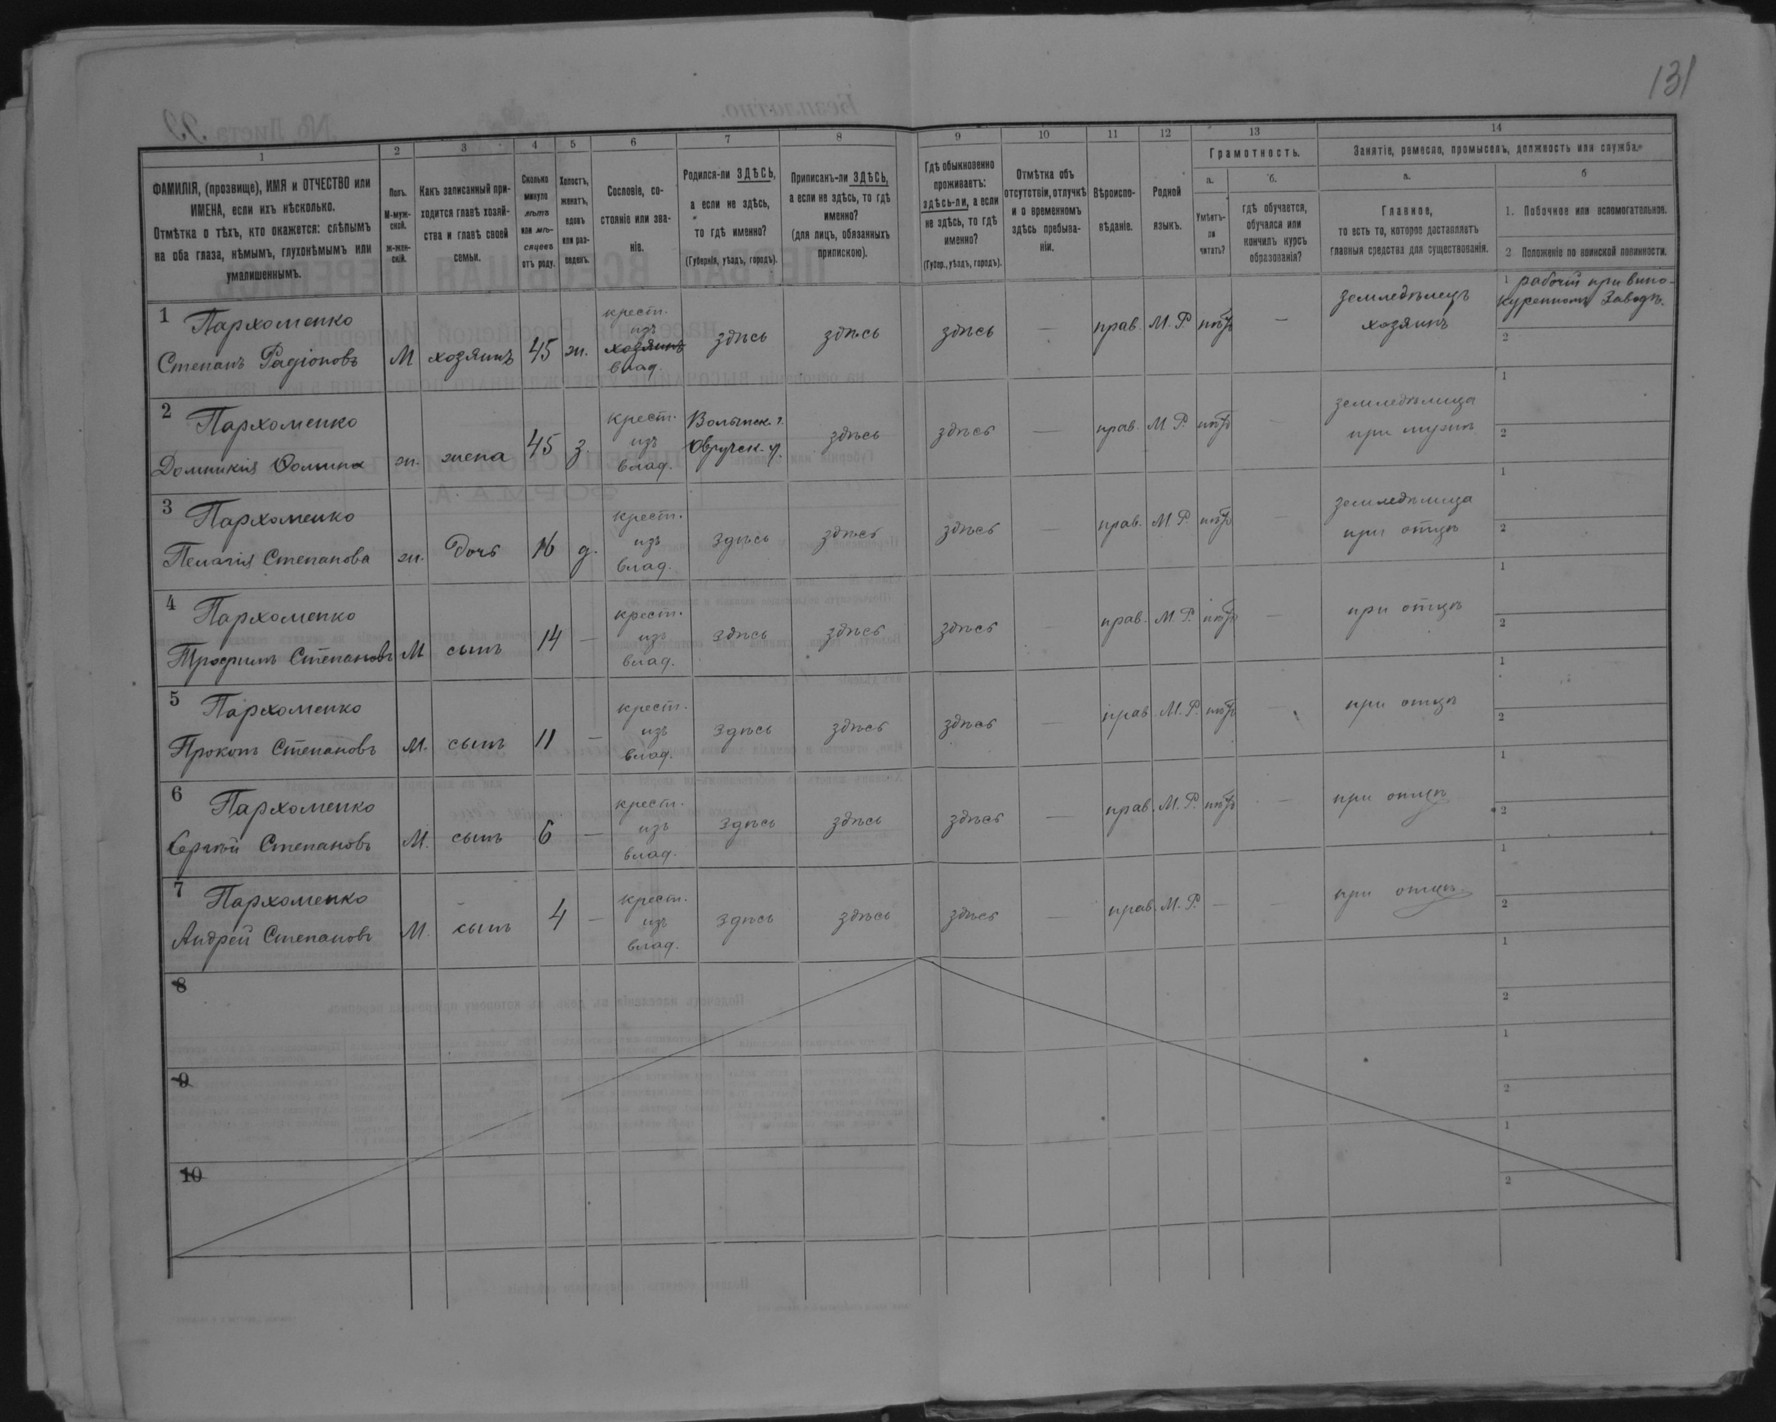 131
1 2 3 4 5 6 7 8 9 10 11 12 13 14
ФАМИЛІЯ, (прозвище), ИМЯ и ОТЧЕСТВО или
ИМЕНА, если ихъ нѣсколько.
Отмѣтка о тѣхъ, кто окажется: слѣпымъ
на оба глаза, нѣмымъ, глухонѣмымъ или
умалишеннымъ.
Полъ.
М-муж-
ской.
ж-жен-
скій.
Какъ записанный при-
ходится главѣ хозяй-
ства и главѣ своей
семьи.
Сколько
минуло
лѣтъ
или мѣ-
сяцевъ
отъ роду.
Холостъ,
женатъ,
вдовъ
или раз-
веденъ.
Сословіе, со-
стояніе или зва-
ніе.
Родился-ли ЗДѢСЬ,
а если не здѣсь,
то гдѣ именно?
(Губернія, уѣздъ, городъ).
Приписанъ-ли ЗДѢСЬ,
а если не здѣсь, то гдѣ
именно?
(для лицъ, обязанныхъ
припискою).
Гдѣ обыкновенно
проживаетъ:
здѣсь-ли, а если
не здѣсь, то гдѣ
именно?
(Губер., уѣздъ, городъ).
Отмѣтка объ
отсутствіи, отлучкѣ
и о временномъ
здѣсь пребыва-
ніи.
Вѣроиспо-
вѣданіе.
Родной
языкъ.
Грамотность.
а. б.
Умѣетъ-
ли
читать?
гдѣ обучается,
обучался или
кончилъ курсъ
образованія?
Занятіе, ремесло, промыселъ, должность или служба.
а. б
Главное,
то есть то, которое доставляетъ
главныя средства для существованія.
1. Побочное или вспомогательное.
2. Положеніе по воинской повинности.
1 Пархоменко
Степанъ Радіоновъ М хозяинъ 45 ж.
крест.
изъ
хозяинъ
влад
здѣсь здѣсь здѣсь — прав. М. Р. нѣтъ —
земледѣлецъ
хозяинъ
1 рабочій при вино-
куренномъ заводѣ.
2
2 Пархоменко
Домникія Ѳомина ж. жена 45 з
крест.
изъ
влад.
Волынск. г.
Овручск. у.
здѣсь здѣсь — прав. М. Р. нѣтъ
земледѣлица
при мужѣ
1
2
3 Пархоменко
Пелагія Степанова ж. дочь 16 д.
крест.
изъ
влад.
здѣсь здѣсь здѣсь — прав. М. Р. нѣтъ
земледѣлица
при отцѣ
1
2
4 Пархоменко
Трофимъ Степановъ М сынъ 14 —
крест.
изъ
влад.
здѣсь здѣсь здѣсь — прав. М. Р. нѣтъ —
при отцѣ
1
2
5 Пархоменко
Прокопъ Степановъ М. сынъ 11 —
крест.
изъ
влад.
здѣсь здѣсь здѣсь — прав. М. Р. нѣтъ —
при отцѣ
1
2
6 Пархоменко
Сергѣй Степановъ М. сынъ 6 —
крест.
изъ
влад.
здѣсь здѣсь здѣсь — прав. М. Р. нѣтъ —
при отцѣ
1
2
7 Пархоменко
Андрей Степановъ М. сынъ 4 —
крест.
изъ
влад.
здѣсь здѣсь здѣсь — прав. М. Р. — —
при отцѣ
1
2
8
1
2
9
1
2
10
1
2